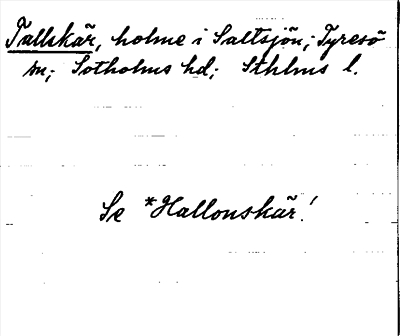 Tallskär, holme i Saltsjön; Tyresö
sn; Sotholms hd; Sthlms l.
Se *Hallonskär!